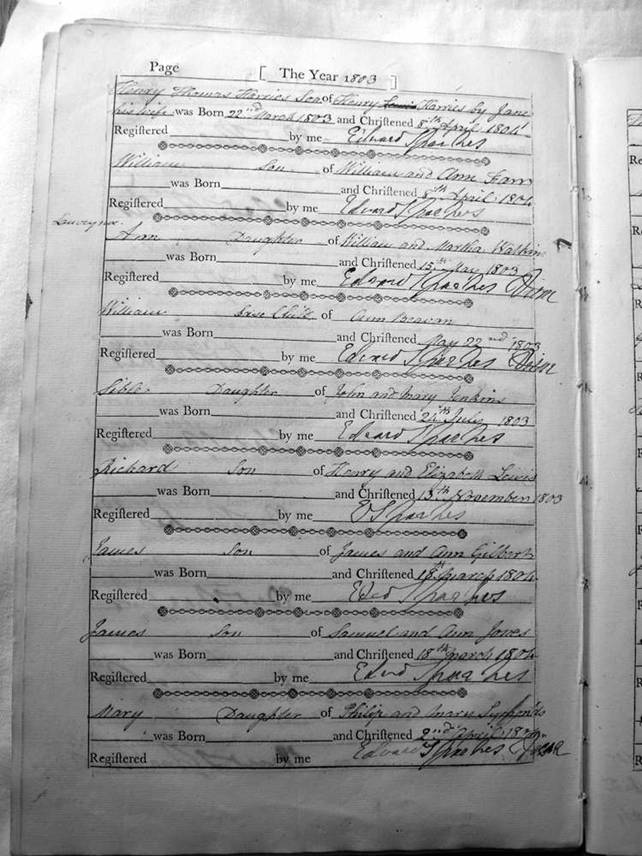 Page [ The Year 1803 ]
Henry Thomas Harries Son of Henry Harries by Jane
his wife was Born 22nd March 1803 and Christened 8th April 1804
Registered by me Edward Sparkes
William Son of William and Ann Farr
was Born and Christened 8th April 1804
Registered by me Edward Sparkes
Ann Daughter of William and Martha Watkins
was Born and Christened 15th May 1803
Registered by me Edward Sparkes
William base Child of Ann Beavan
was Born and Christened May 22nd 1803
Registered by me Edward Sparkes
Daughter of John and Mary Jenkins
was Born and Christened 24th July 1803
Registered by me Edward Sparkes
Richard Son of Henry and Elizabeth Lewis
was Born and Christened 13th November 1803
Registered by me E Sparkes
James Son of James and Ann Gilbert
was Born and Christened 18th march 1804
Registered by me Edwd Sparkes
James Son of Samuel and Ann Jones
was Born and Christened 18th march 1804
Registered by me Edwd Sparkes
Mary Daughter of Philip and
was Born and Christened 2nd April
Registered by me Edward Sparkes